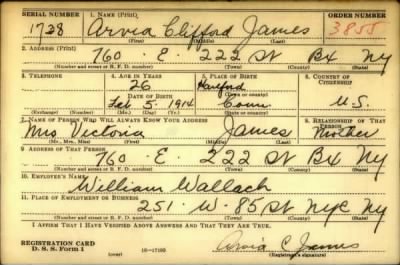 SERIAL NUMBER 1. NAME (Print) ORDER NUMBER
1728 Arvia Clifford James 3855
2. ADDRESS (Print)
760 E. 222 St Bx NY
(Number and street or R. F. D. number) (Town) (County) (State)
3. TELEPHONE 4. AGE IN YEARS 5. PLACE OF BIRTH 6. COUNTRY OF
26 Hartford CITIZENSHIP
DATE OF BIRTH (Town or county)
Feb 5, 1914 Conn U.S.
(Exchange) (Number) (Mo.) (Day) (Yr.) (State or country)
7. NAME OF PERSON WHO WILL ALWAYS KNOW YOUR ADDRESS 8. RELATIONSHIP OF THAT PERSON
Mrs Victoria James Mother
(Mr., Mrs., Miss) (First) (Middle) (Last)
9. ADDRESS OF THAT PERSON
760 E. 222 St Bx NY
(Number and street or R. F. D. number) (Town) (County) (State)
10. EMPLOYER'S NAME
William Wallach
11. PLACE OF EMPLOYMENT OR BUSINESS
251 W. 85 St NYC NY
(Number and street or R. F. D. number) (Town) (County) (State)
I AFFIRM THAT I HAVE VERIFIED ABOVE ANSWERS AND THAT THEY ARE TRUE.
REGISTRATION CARD
D. S. S. Form 1 (over) 16—17105 Arvia C James
(Registrant's signature)